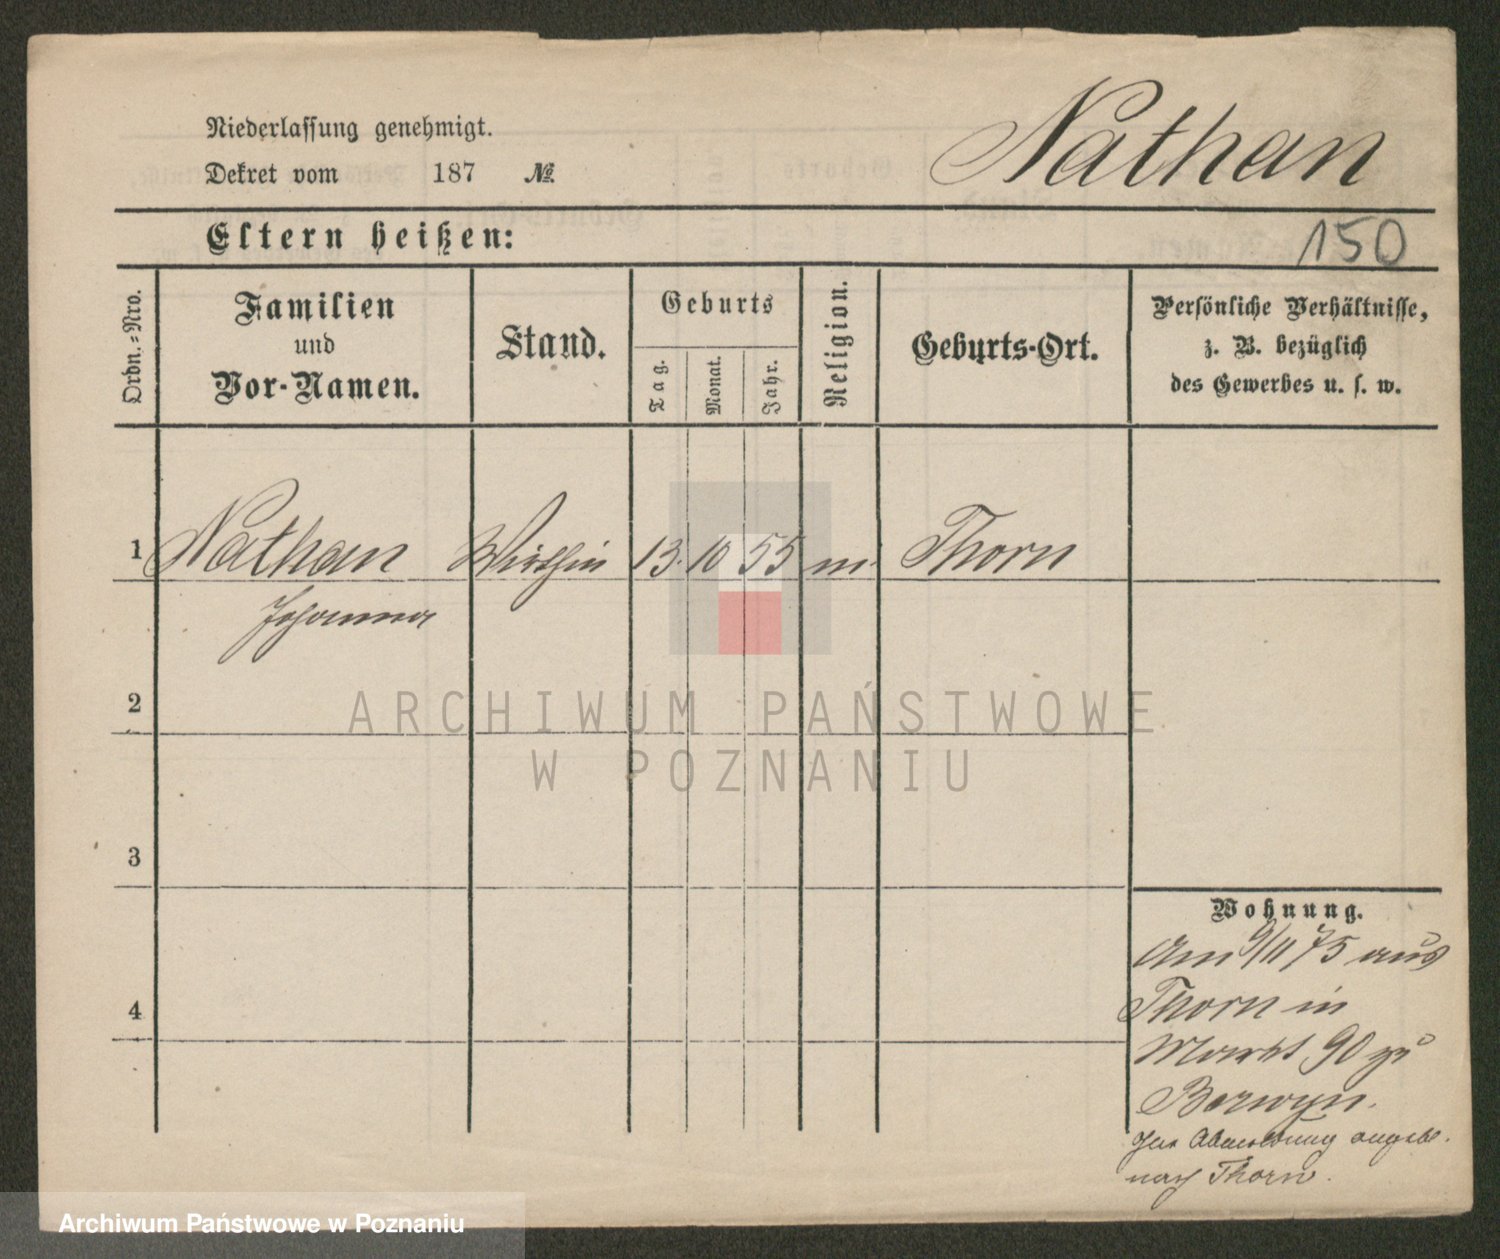 Niederlassung genehmigt.
Nathan
Dekret vom 187 №
Eltern heißen:
150
Ordn.=Nro.
Familien
und
Vor-Namen.
Stand.
Geburts
Tag.
Monat.
Jahr.
Religion.
Geburts-Ort.
Persönliche Verhältnisse,
z. B. bezüglich
des Gewerbes u. s. w.
1 Nathan Wirthin 13. 10 55 m. Thorn
Johanna
2
3
4
Wohnung.
Am 9/11 75 aus
Thorn in
Markt 90 zu
Berwyn.
Abmeldung
nach Thorn.
ARCHIWUM PAŃSTWOWE
W POZNANIU
Archiwum Państwowe w Poznaniu